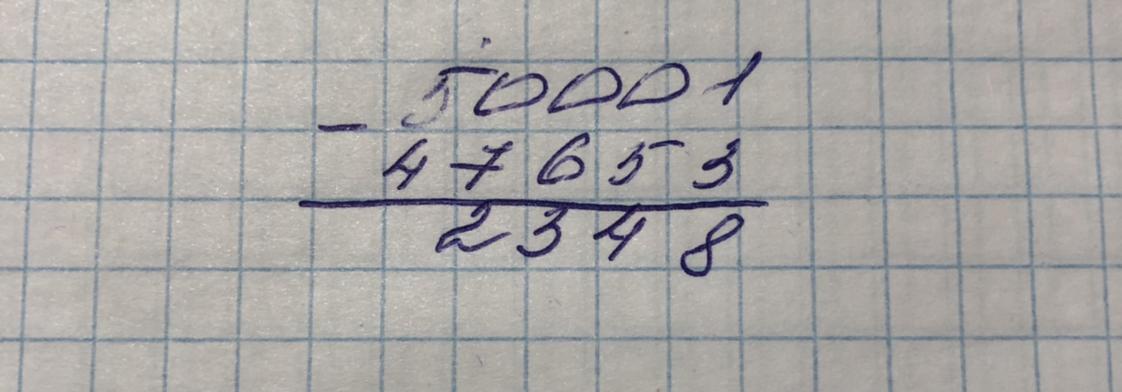 50001
- 47653
2348